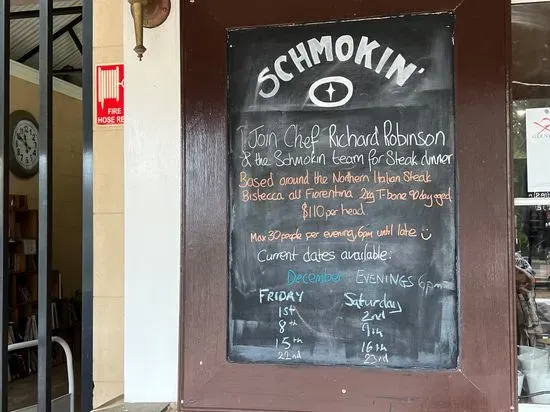 SCHMOKIN'
Join Chef Richard Robinson
& the Schmokin team for Steak dinner
Based around the Northern Italian Steak
Bistecca all Fiorentina 2kg T-bone 90 day aged
$110 per head.
Max 30 people per evening, 6pm until late
Current dates available:
December: EVENINGS 6pm
FRIDAY
1st
8th
15th
22nd
Saturday
2nd
9th
16th
23rd
FIRE
HOSE RE